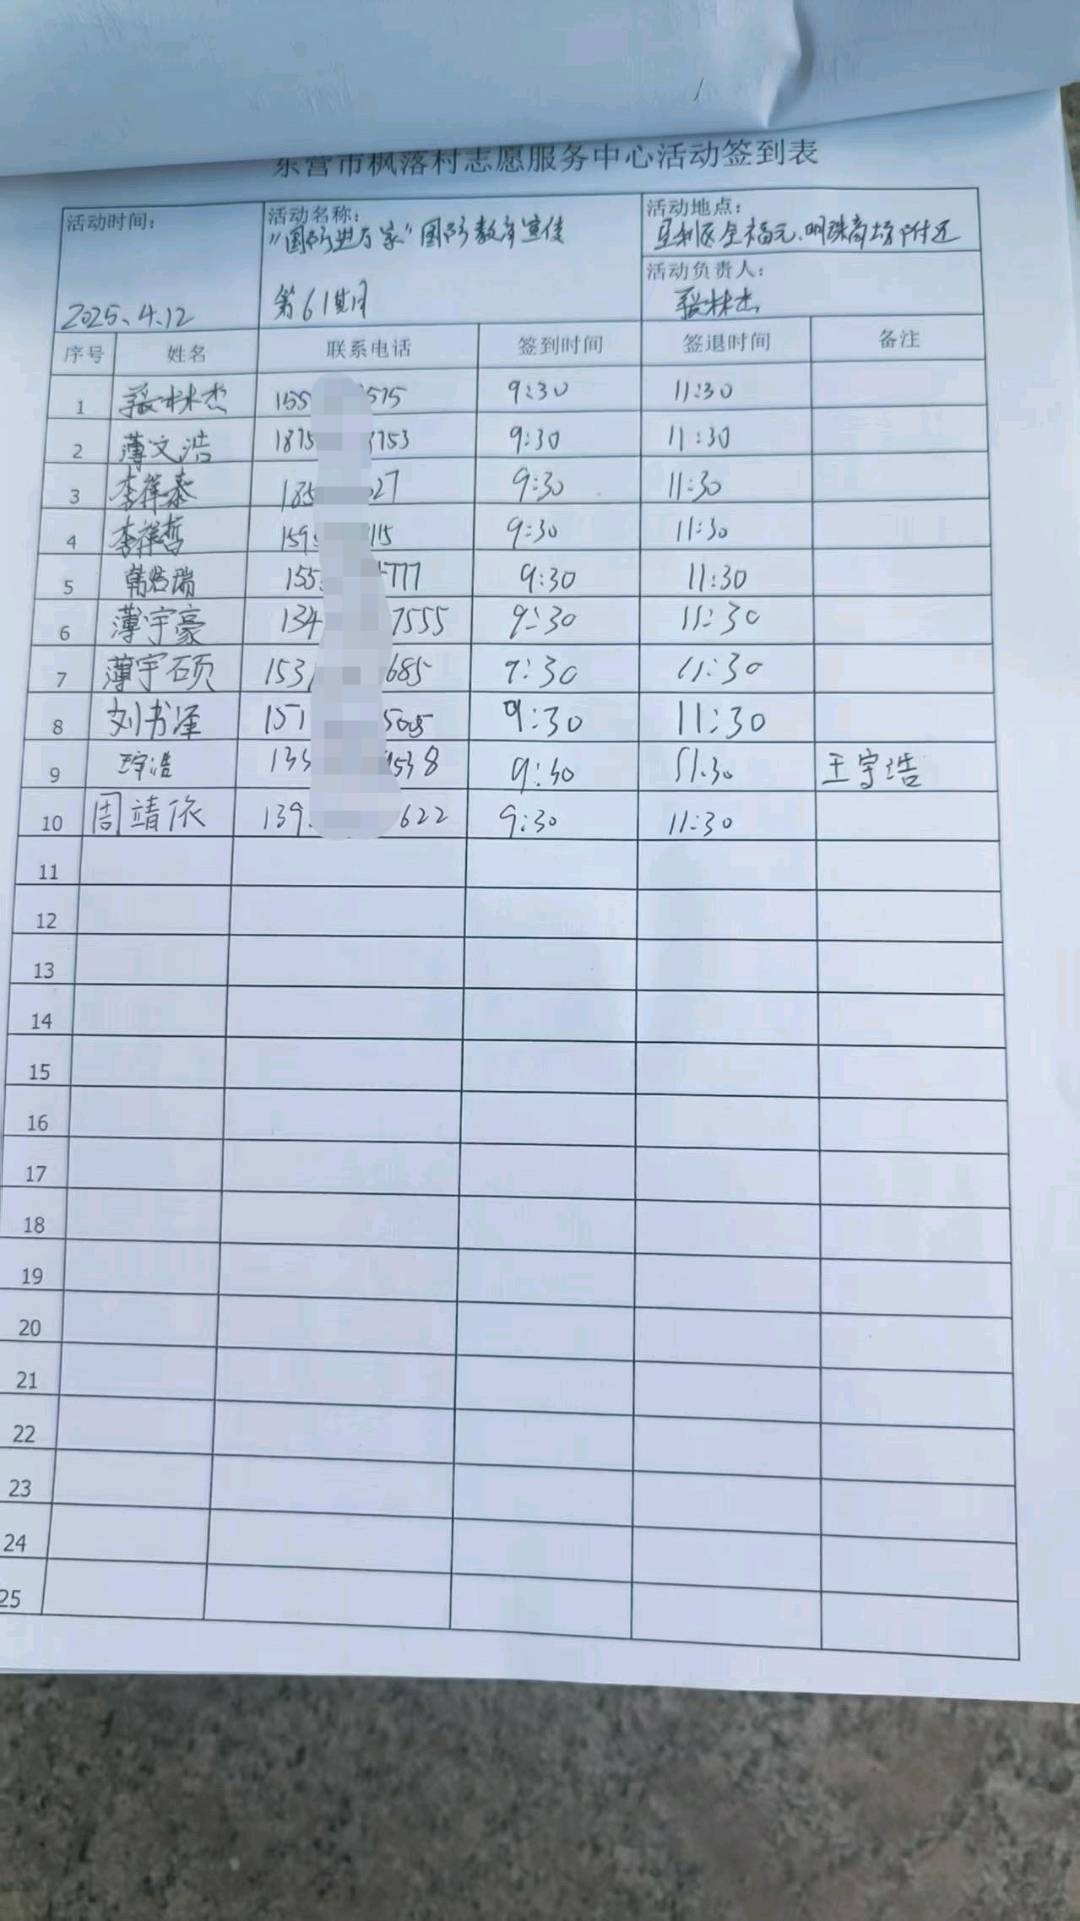 东营市枫落村志愿服务中心活动签到表
活动时间： 2025.4.12
活动名称： "国防进万家"国防教育宣传
第61期
活动地点： 垦利区全福元、明珠商场附近
活动负责人： 张林杰
序号 姓名 联系电话 签到时间 签退时间 备注
1 张林杰 155 575 9:30 11:30
2 薄文浩 1875 3753 9:30 11:30
3 李祥泰 185 27 9:30 11:30
4 李祥哲 159 115 9:30 11:30
5 韩瑞 155 777 9:30 11:30
6 薄宇豪 134 7555 9:30 11:30
7 薄宇硕 153 685 9:30 11:30
8 刘书泽 151 9:30 11:30
9 王宇浩 133 538 9:30 11:30 王宇浩
10 周靖依 139 622 9:30 11:30
11
12
13
14
15
16
17
18
19
20
21
22
23
24
25